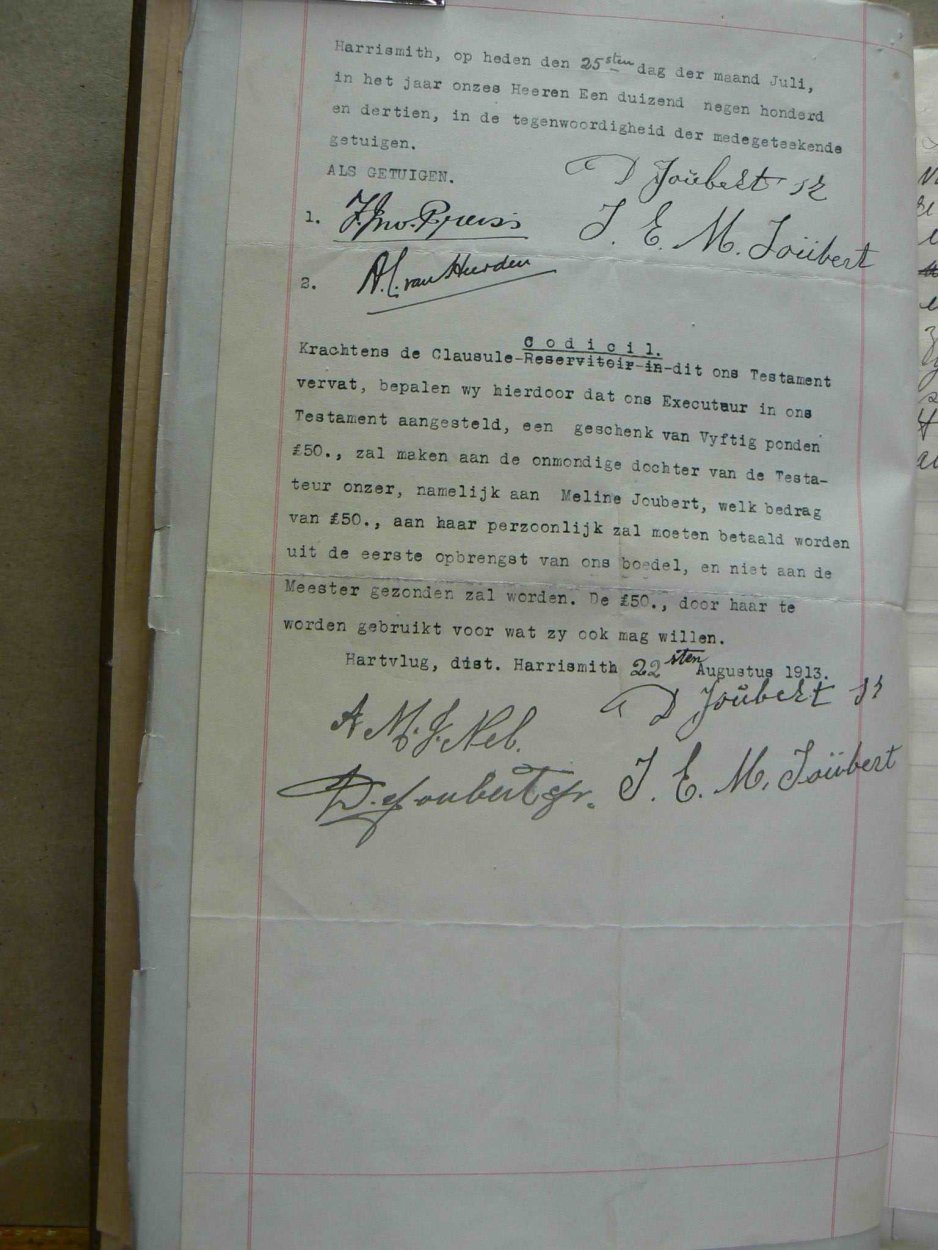 Harrismith, op heden den 25sten dag der maand Juli,
in het jaar onzes Heeren Een duizend negen honderd
en dertien, in de tegenwoordigheid der medegeteekende
getuigen.
ALS GETUIGEN.
D Joubert sr
1.
J. E. M. Joübert
2. A. C. van Heerden
Codicil.
Krachtens de Clausule-Reservitoir-in-dit ons Testament
vervat, bepalen wy hierdoor dat ons Executeur in ons
Testament aangesteld, een geschenk van Vyftig ponden
£50., zal maken aan de onmondige dochter van de Testa-
teur onzer, namelijk aan Meline Joubert, welk bedrag
van £50., aan haar perzoonlijk zal moeten betaald worden
uit de eerste opbrengst van ons boedel, en niet aan de
Meester gezonden zal worden. De £50., door haar te
worden gebruikt voor wat zy ook mag willen.
Hartvlug, dist. Harrismith 22sten Augustus 1913.
D Joübert sr
A. M. J. Nel.
J. E. M. Joübert
D. Joubert jr.